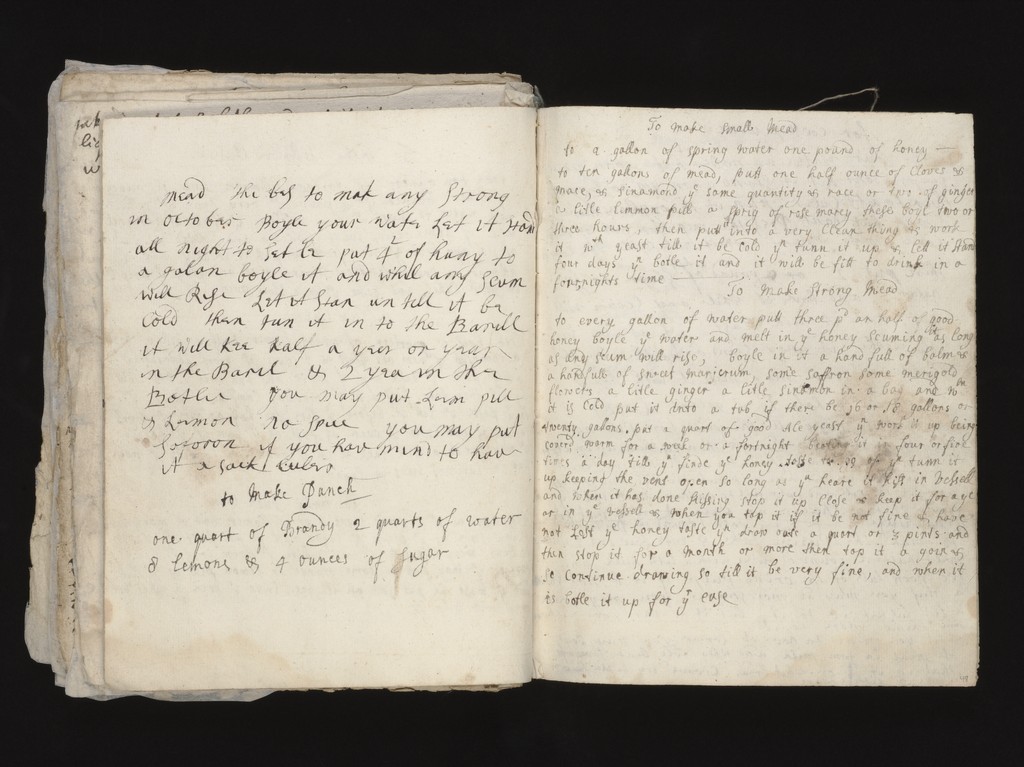 mead the bes to mak any strong
in october Boyle your water Let it stand
all night to setle put 4 of huny to
a galan boyle it and whill any scum
will Rise Let it stan un tell it be
Cold then tun it in to the Barill
it will kee half a year or year
in the Baril & 2 yea in the
Botle you may put Lem pill
& Lamon no spice you may put
if you hav mind to hav
it a sack culer
to Make Punch
one quart of Brandy 2 quarts of water
8 lemons & 4 ounces of sugar
To make small Mead
to a gallon of spring water one pound of honey
to ten gallons of mead, putt one half ounce of Cloves &
mace, & sinamond ye same quantity & race or two of ginger
a litle lemmon pill a sprig of rose marey these boyl two or
three hours, then putt into a very Clean thing & work
it wth yeast till it be Cold yn tunn it up & lett it stand
four days yn botle it and it will be fitt to drink in a
fortnights time
To Make Strong Mead
to every gallon of water putt three pd an half of good
honey boyle ye water and melt in ye honey scuming it as long
as any scum will rise, boyle in it a handfull of balm &
a handfull of sweet marjerum, some saffron some merigold
flowers a litle ginger a litle sinamon in a bag and wn
it is Cold put it into a tub, if there be 16 or 18 gallons or
twenty gallons put a quart of good Ale yeast yn work it up being
coverd warm for a week or a fortnight beating it in four or five
times a day till ye finde ye honey taste to go of yn tunn it
up keeping the vent open so long as ye heare it hiss in Vessell
and when it has done hissing stop it up Close & keep it for a ye
ar in ye Vessell & when you tap it if it be not fine & have
not Lost ye honey taste yn draw oute a quart or 3 pints and
then stop it for a month or more then tap it a goin &
so Continue drawing so till it be very fine, and when it
is botle it up for yr euse